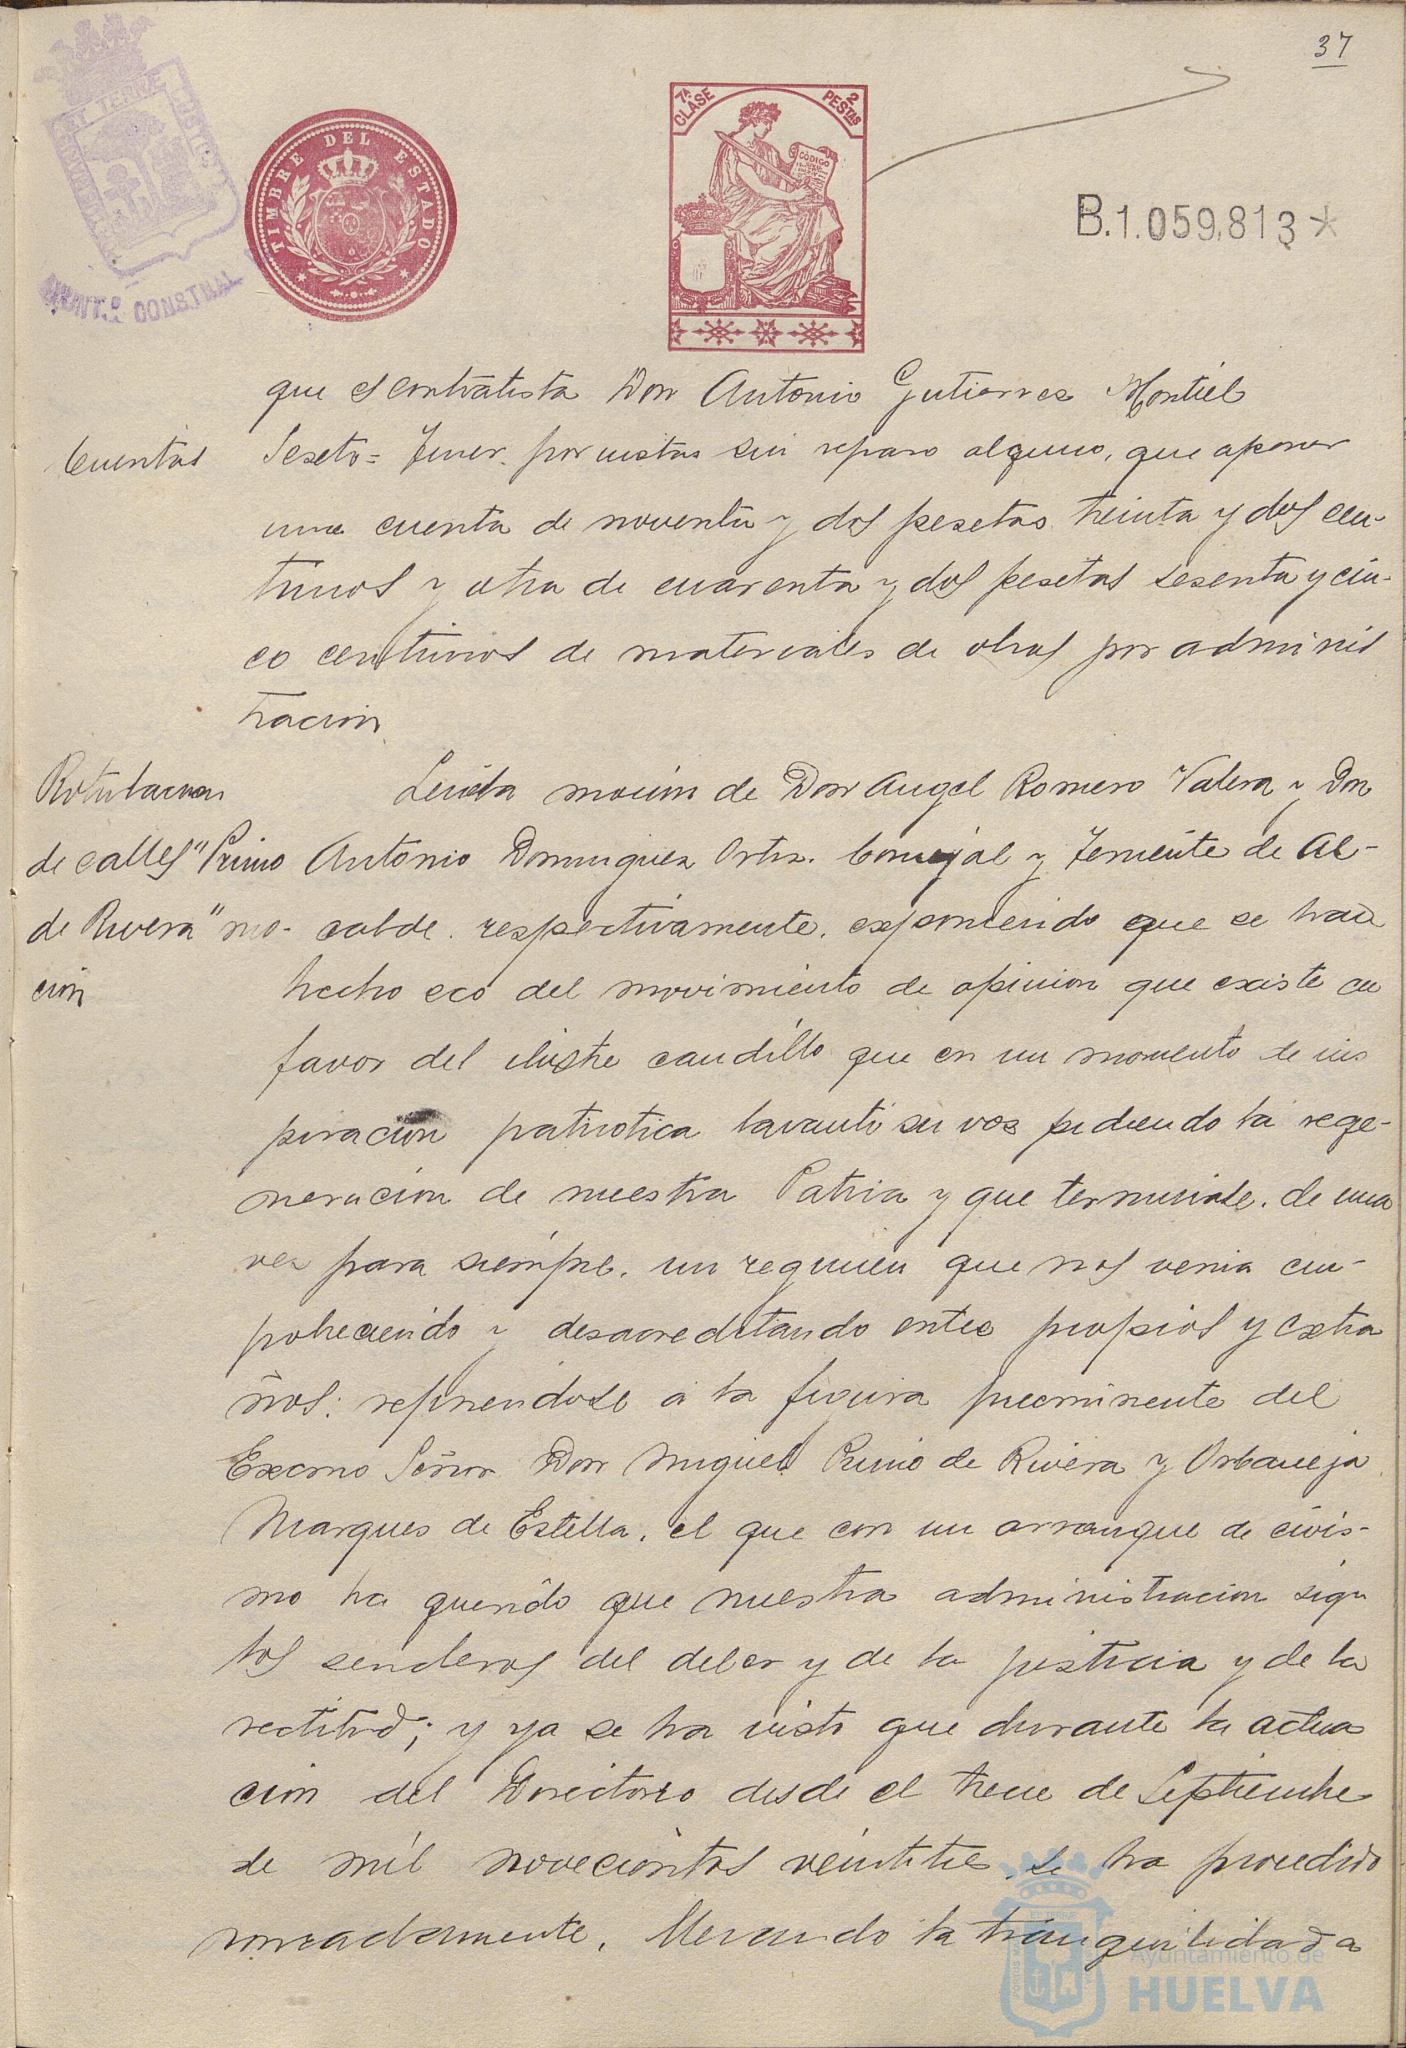 37
TIMBRE DEL ESTADO
7ª CLASE
2 PESTAS
CÓDIGO
B.1.059,813*
AYUNT.º CONSTNAL
que el contratista Don Antonio Gutierrez Montiel
Cuentas
Sexto= Tener por vistas sin reparo alguno, que aponer
una cuenta de noventa y dos pesetas treinta y dos cen-
timos y otra de cuarenta y dos pesetas sesenta y cin-
co centimos de materiales de obras por adminis
tracion
Rotulacion
de calles "Primo
de Rivera" mo-
cion
Leida mocion de Don Angel Romero Valera y Don
Antonio Dominguez Ortiz. Concejal y Teniente de Al-
calde. respectivamente. exponiendo que se han
hecho eco del movimiento de opinion que existe en
favor del ilustre caudillo que en un momento de ins
piracion patriotica lavantó su vos pidiendo la rege-
neracion de nuestra Patria y que terminase. de una
vez para siempre. un regimen que nos venia em-
pobreciendo y desacreditando entre propios y extra
ños: refiriendose a la figura preeminente del
Excmo Señor Don Miguel Primo de Rivera y Orbaneja
Marques de Estella. el que con un arranque de civis-
mo ha querido que nuestra administracion siga
los senderos del deber y de la justicia y de la
rectitud; y ya se ha visto que durante la actua
cion del Directorio desde el trece de Septiembre
de mil novecientos veintitres. se ha procedido
honradamente. llevando la tranquilidad a
Ayuntamiento de
HUELVA